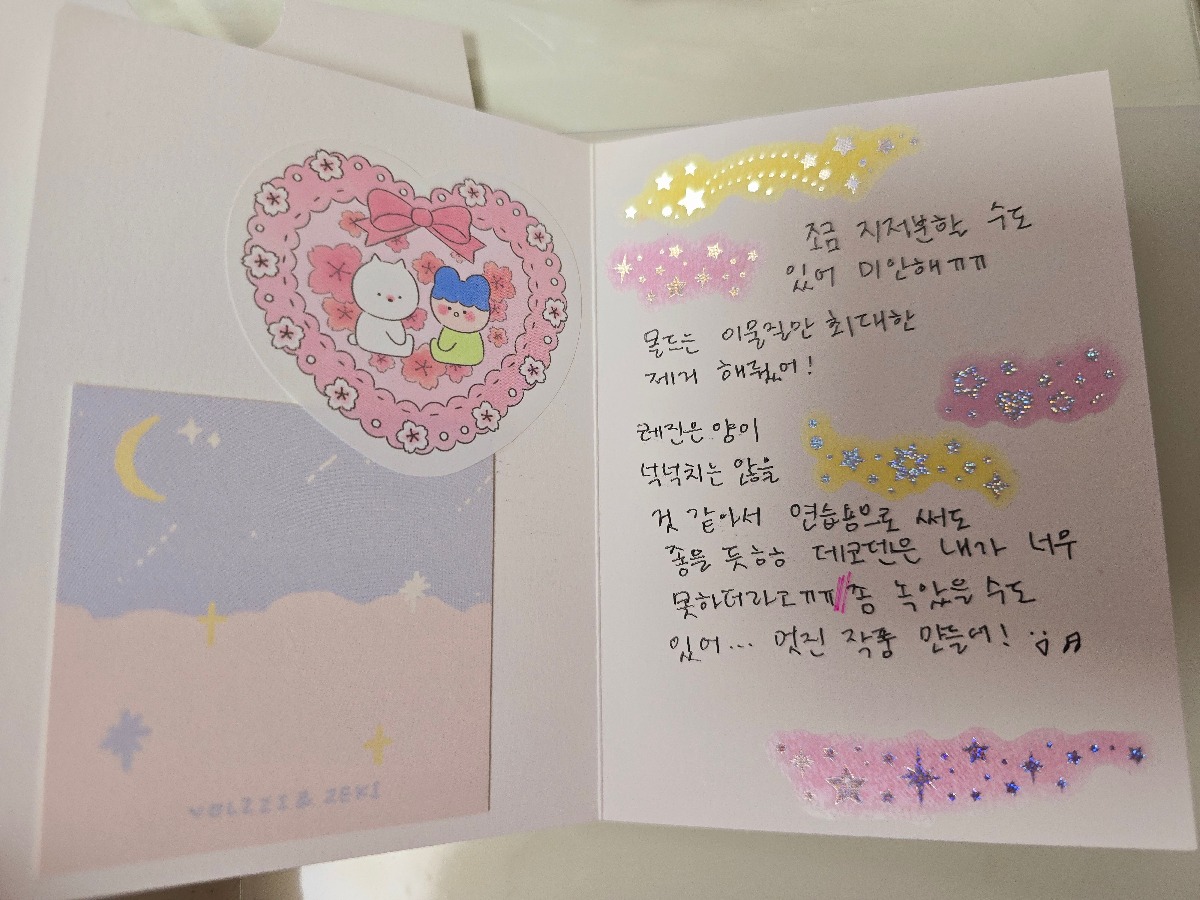 조금 지저분할 수도
있어 미안해ㅠㅠ
몰드는 이물질만 최대한
제거 해뒀어!
레진은 양이
넉넉치는 않을
것 같아서 연습용으로 써도
좋을 듯ㅎㅎ 데코덴은 내가 너무
못하더라고ㅠㅠ 좀 녹았을 수도
있어... 멋진 작품 만들어!